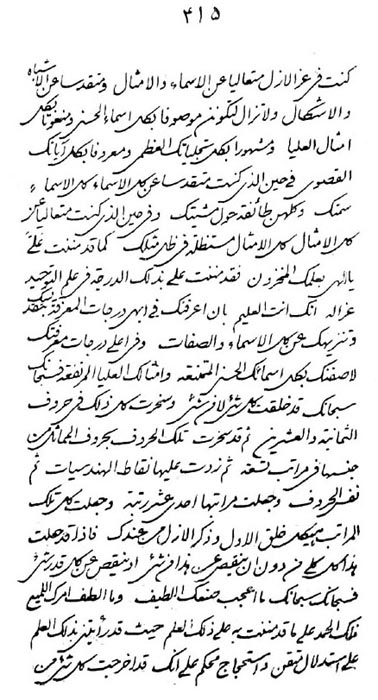 ٤١٥
كنت في عز الازل متعاليا عن الاسماء والامثال ومتقدسا عن الاشباه
والاشكال ولا تزال لتكونن موصوفا بكل اسماء الحسنى ومنعوتا بكل
امثال العليا ومشهورا بكل تجلياتك العظمى ومعروفا بكل آياتك
القصوى في حين الذي كنت متقدسا عن كل الاسماء كل الاسماء
سمتك وكلهن طائفة حول مشيتك وفي حين الذي كنت متعاليا عن
كل الامثال كل الامثال مستظلة في ظل كما قد مننت علي
يا الهي بعلمك المخزون فقد مننت علي بذلك الدرجة في علم التوحيد
انك انت العليم بان اعرفنك في ابهى درجات المعرفة
وتنزيهك عن كل الاسماء والصفات وفي اعلى درجات معرفتك
لاصفنك بكل اسمائك الحسنى الممتنعة وامثالك العليا المرتفعة فسبحانك
سبحانك قد خلقت كل شئ لا من شئ وسخرت كل ذلك في حروف
الثمانية والعشرين ثم قد سخرت تلك الحروف بحروف
في مراتب تسعة ثم زدت عليها نقاط الهندسيات ثم
نفس الحروف وجعلت مراتبها احد عشر رتبة وجعلت كل تلك
المراتب هيكل خلق الاول وذكر الازل من عندك فاذا قد جعلت
هذا كل من دون ان ينقص عن هذا من شئ او ينقص عن كل قدر شئ
فسبحانك سبحانك ما اعجب صنعك اللطيف وما الطف امرك المنيع
فلك الحمد على ما قد مننت به علي ذلك العلم حيث قد ايدتني بذلك العلم
على استدلال متقن واستحجاج محكم على انك قد اخرجت كل شئ من